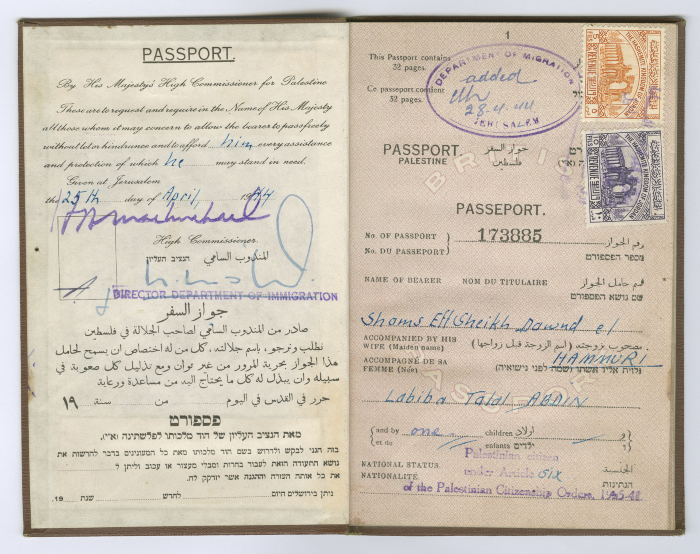 PASSPORT.
By His Majesty's High Commissioner for Palestine
These are to request and require in the Name of His Majesty
all those whom it may concern to allow the bearer to pass freely
without let or hindrance and to afford him every assistance
and protection of which he may stand in need.
Given at Jerusalem
the 25th day of April, 1944
High Commissioner.
المندوب السامي הנציב העליון
DIRECTOR DEPARTMENT OF IMMIGRATION
جواز السفر
صادر من المندوب السامي لصاحب الجلالة في فلسطين
نطلب ونرجو، باسم جلالته، كل من له اختصاص ان يسمح لحامل
هذا الجواز بحرية المرور من غير توان ومع تذليل كل صعوبة في
سبيله وان يبذل له كل ما يحتاج اليه من مساعدة ورعاية
حرر في القدس في اليوم من سنة ١٩
פספורט
מאת הנציב העליון של הוד מלכותו לפלשתינה א״י.
בזה הנני לבקש ולדרוש בשם הוד מלכותו מאת כל המעונינים בדבר להרשות את
נושא התעודה הזאת לעבור בחרות ומבלי מעצור או עכוב וליתן ל
את כל אותה העזרה וההגנה אשר יזדקק לה.
ניתן בירושלים היום לחדש שנת 19
1
This Passport contains
32 pages.
Ce passeport contient
32 pages.
DEPARTMENT OF MIGRATION
added
28.4.44
JERUSALEM
THE HASHEMITE KINGDOM OF JORDAN
REVENUE
THE HASHEMITE KINGDOM OF JORDAN
REVENUE
PASSPORT. جواز السفر
PALESTINE فلسطين
BRITISH
PASSEPORT.
No. OF PASSPORT 173885 رقم الجواز
No. DU PASSEPORT מספר הפספורט
NAME OF BEARER NOM DU TITULAIRE اسم حامل الجواز
שם נושא הפספורט
Shams Eff. Sheikh Dawud el
ACCOMPANIED BY HIS
WIFE (Maiden name) مصحوب بزوجته (اسم الزوجة قبل زواجها)
HAMMURI
ACCOMPAGNÉ DE SA
FEMME (Née) נלויה אליו אשתו (שמה לפני נישואיה)
Labiba Talal ABDIN
and by one children اولاد و
et de enfants ילדים
NATIONAL STATUS. الجنسية
NATIONALITÉ. הנתינות
Palestinian citizen
under Article six
of the Palestinian Citizenship Orders, 1925-41